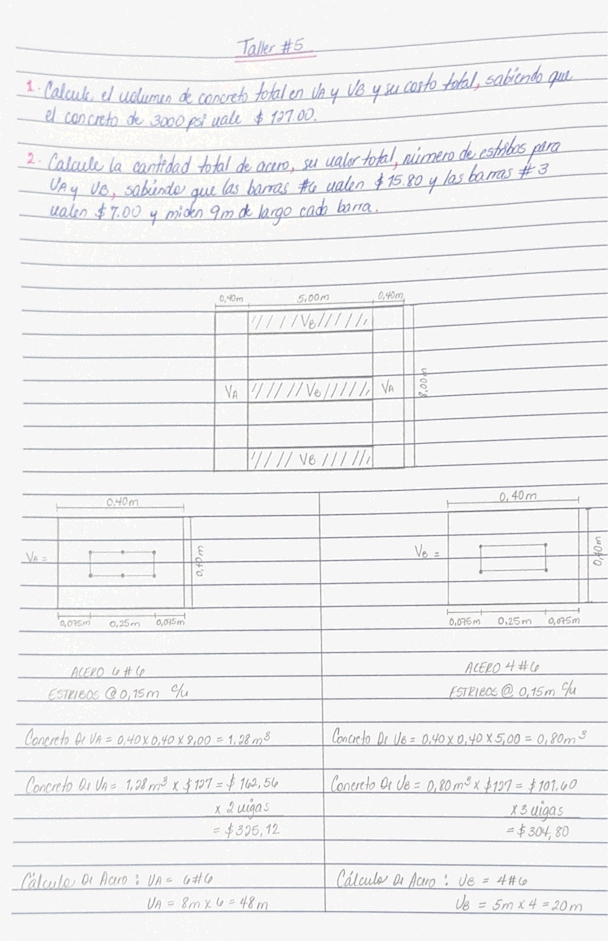 Taller #5
1. Calcule el volumen de concreto total en VA y VB y su costo total, sabiendo que
el concreto de 3000 psi vale $127.00.
2. Calcule la cantidad total de acero, su valor total, número de estribos para
VA y VB, sabiendo que las barras #6 valen $15.80 y las barras #3
valen $7.00 y miden 9m de largo cada barra.
0,40m 5,00m 0,40m
VB
VA VB VA 8,00m
VB
0,40m 0,40m
VA = 0,40m VB = 0,40m
0,075m 0,25m 0,075m 0,075m 0,25m 0,075m
ACERO 6#6 ACERO 4#6
ESTRIBOS @ 0,15m c/u ESTRIBOS @ 0,15m c/u
Concreto De VA = 0,40 x 0,40 x 8,00 = 1,28m³ Concreto De VB = 0,40 x 0,40 x 5,00 = 0,80m³
Concreto De VA = 1,28m³ x $127 = $162,56 Concreto De VB = 0,80m³ x $127 = $101,60
x 2 vigas x 3 vigas
= $325,12 = $304,80
Cálculo De Acero : VA = 6#6 Cálculo De Acero : VB = 4#6
VA = 8m x 6 = 48m VB = 5m x 4 = 20m